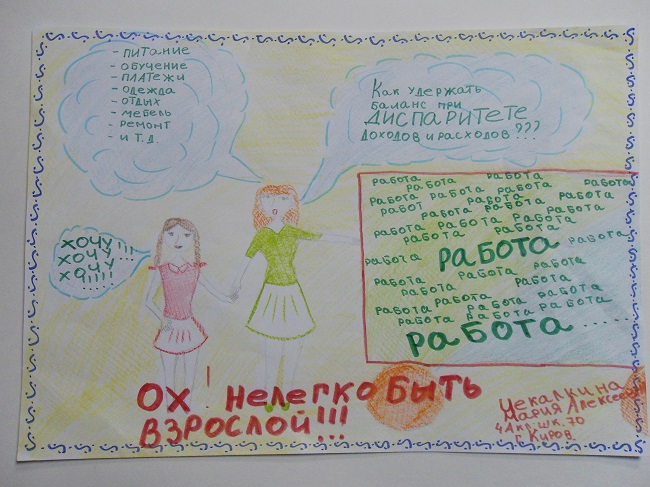 - питание
- обучение
- платежи
- одежда
- отдых
- мебель
- ремонт
- и т.д.
Как удержать
баланс при
диспаритете
доходов и расходов???
Хочу!!!
Хочу
Хочу
!!!!!
работа работа
работа работа
работа работа работа
работ работа работа
работа работа работа
работа работа работа
работа работа
работа работа работа
работа работа работа
работа работа
работа работа работа работа
работа работа работа
работа......
Ох! нелегко быть
взрослой!!!
Чекалкина
Мария Алексеев
4А кл. шк. 70
г. Киров.